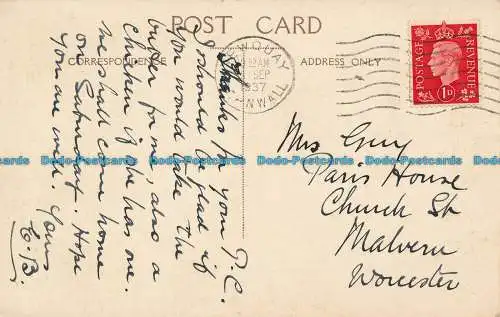 POST CARD
CORRESPONDENCE
ADDRESS ONLY
NEWQUAY
AM
SEP
1937
CORNWALL
POSTAGE
REVENUE
1D
Thanks for your P.C.
I should be glad if
you would take the
butter for me, also a
chicken if she has one.
We shall come home
on Saturday. Hope
you are well. Yours
E.B.
Mrs Guy
Paris House
Church St
Malvern
Worcester
Dodo-Postcards Dodo-Postcards Dodo-Postcards Dodo-Postcards